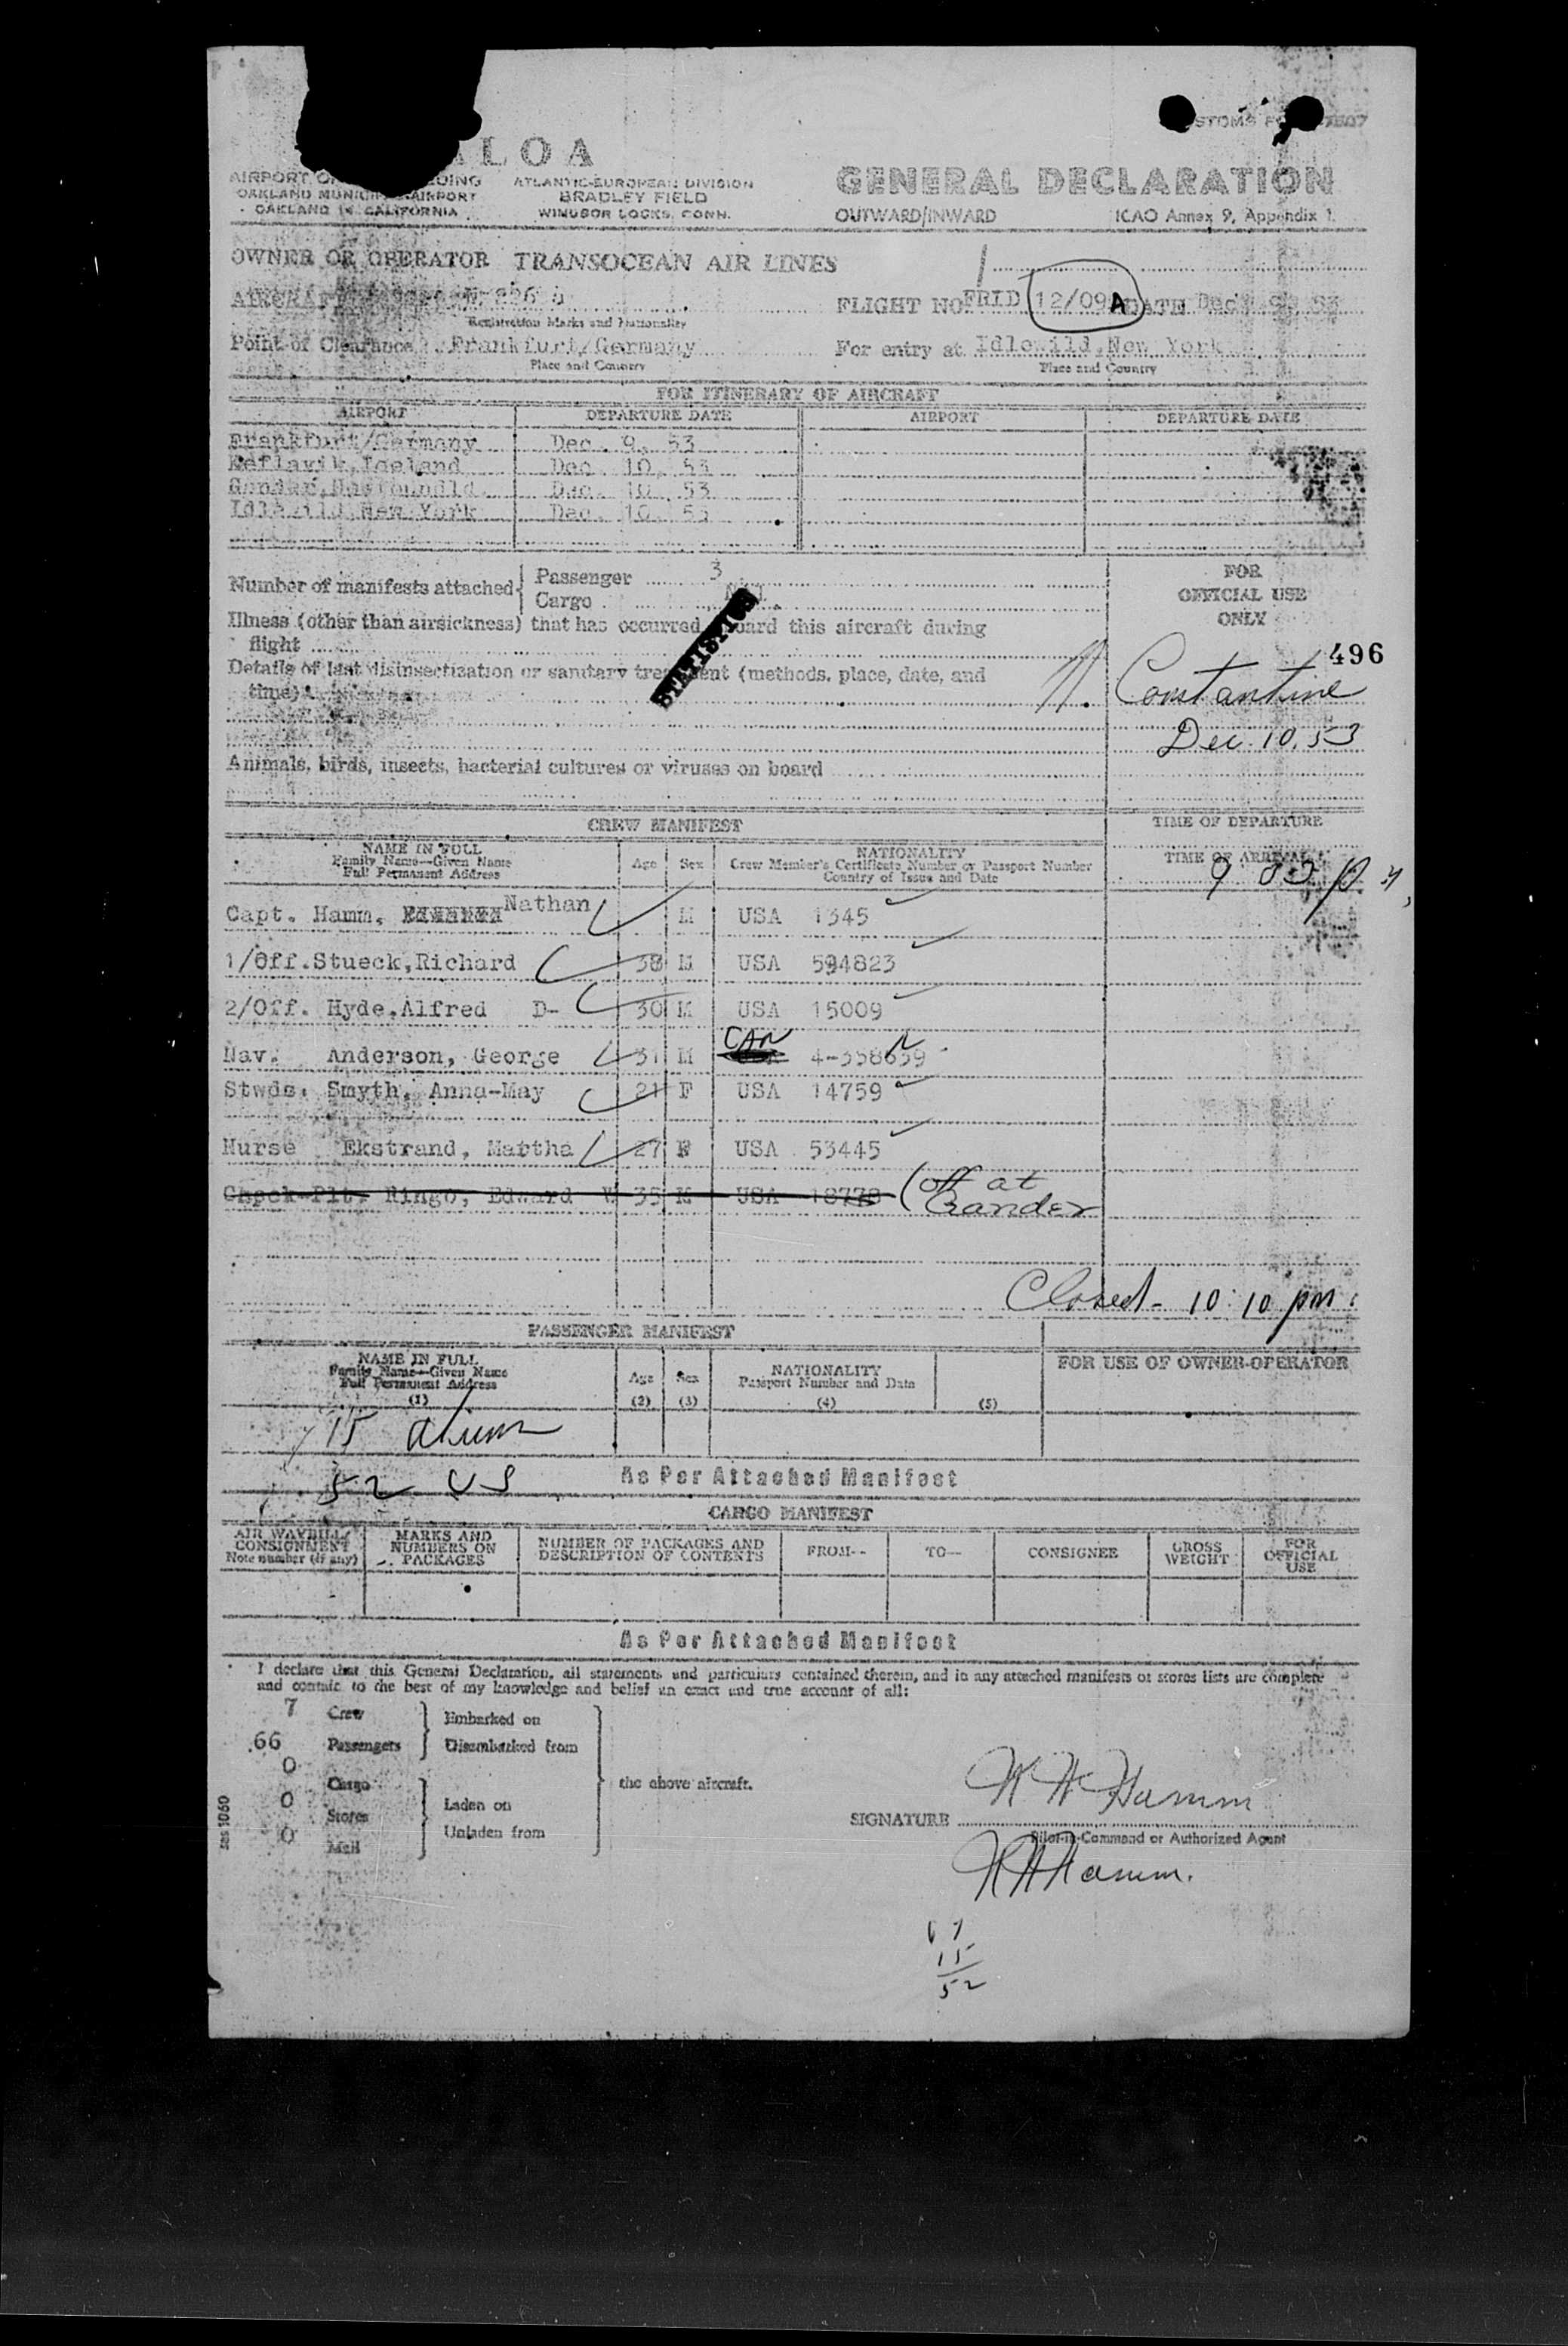 ALOA
CUSTOMS FORM 7507
AIRPORT BUILDING
OAKLAND MUNICIPAL AIRPORT
OAKLAND 14, CALIFORNIA
ATLANTIC-EUROPEAN DIVISION
BRADLEY FIELD
WINDSOR LOCKS, CONN.
GENERAL DECLARATION
OUTWARD/INWARD ICAO Annex 9, Appendix 1.
OWNER OR OPERATOR TRANSOCEAN AIR LINES
AIRCRAFT FLIGHT NO FRID 12/09 A DATE Dec. 9, 53
Registration Marks and Nationality
Point of Clearance Frankfurt/Germany For entry at Idlewild, New York
Place and Country Place and Country
FOR ITINERARY OF AIRCRAFT
AIRPORT DEPARTURE DATE AIRPORT DEPARTURE DATE
Frankfurt/Germany Dec. 9, 53
Keflavik, Iceland Dec. 10, 53
Gander, Dec. 10, 53
Idlewild, New York Dec. 10, 53
Number of manifests attached Passenger 3
Cargo Nil.
FOR
OFFICIAL USE
ONLY
Illness (other than airsickness) that has occurred aboard this aircraft during
flight
STATISTICS
496
Details of last disinsectization or sanitary treatment (methods, place, date, and
time)
N. Constantine
Dec. 10, 53
Animals, birds, insects, bacterial cultures or viruses on board
CREW MANIFEST TIME OF DEPARTURE
NAME IN FULL
Family Name--Given Name
Full Permanent Address
Age Sex
NATIONALITY
Crew Member's Certificate Number or Passport Number
Country of Issue and Date
TIME OF ARRIVAL
9 03 p m
Capt. Hamm, Nathan M USA 1345
1/Off. Stueck, Richard 38 M USA 594823
2/Off. Hyde, Alfred D- 30 M USA 15009
Nav. Anderson, George 31 M CAN 4-358659
Stwds. Smyth, Anna-May 21 F USA 14759
Nurse Ekstrand, Martha 27 F USA 53445
Check-Plt- Ringo, Edward W 35 M USA 18778 (off at
Gander
Closed - 10:10 pm.
PASSENGER MANIFEST
NAME IN FULL
Family Name--Given Name
Full Permanent Address
(1)
Age
(2)
Sex
(3)
NATIONALITY
Passport Number and Date
(4)
(5)
FOR USE OF OWNER-OPERATOR
15 aliens
52 US As Per Attached Manifest
CARGO MANIFEST
AIR WAYBILL/
CONSIGNMENT
Note number (if any)
MARKS AND
NUMBERS ON
PACKAGES
NUMBER OF PACKAGES AND
DESCRIPTION OF CONTENTS
FROM-- TO-- CONSIGNEE
GROSS
WEIGHT
FOR
OFFICIAL
USE
As Per Attached Manifest
I declare that this General Declaration, all statements and particulars contained therein, and in any attached manifests or stores lists are complete
and contain to the best of my knowledge and belief an exact and true account of all:
7 Crew Embarked on
66 Passengers Disembarked from
0 Cargo the above aircraft.
0 Stores Laden on
0 Mail Unladen from
sas 1060
N H Hamm
SIGNATURE
Pilot-in-Command or Authorized Agent
N H Hamm.
67
15
52